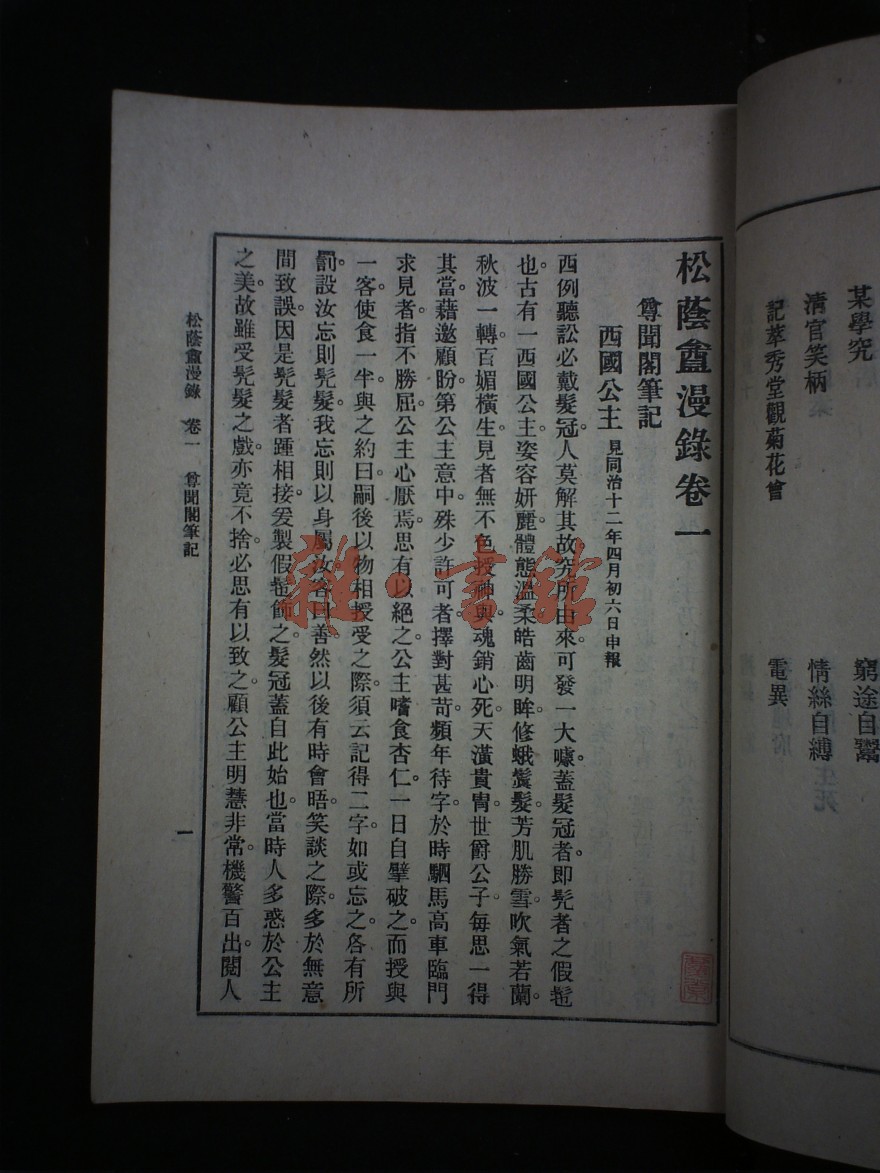 某學究
窮途自鬻
清官笑柄
情絲自縛
記萃秀堂觀菊花會
電異
松蔭盦漫錄卷一
尊聞閣筆記
西國公主 見同治十二年四月初六日申報
西例聽訟必戴髮冠。人莫解其故。究所由來。可發一大噱。蓋髮冠者。即髡者之假髢
也。古有一西國公主。姿容妍麗。體態溫柔。皓齒明眸。修蛾鬒髮。芳肌勝雪。吹氣若蘭。
秋波一轉。百媚橫生。見者無不色授神與。魂銷心死。天潢貴胄。世爵公子。每思一得
其當。藉邀顧盼。第公主意中。殊少許可者。擇對甚苛。頻年待字。於時駟馬高車。臨門
求見者。指不勝屈。公主心厭焉。思有以絕之。公主嗜食杏仁。一日自擘破之。而授與
一客使食一半。與之約曰。嗣後以物相授受之際。須云記得二字。如或忘之。各有所
罰。設汝忘則髡髮。我忘則以身屬汝。客曰善。然以後有時會晤。笑談之際。多於無意
間致誤。因是髡髮者踵相接。爰製假髢飾之。髮冠蓋自此始也。當時人多惑於公主
之美。故雖受髡髮之戲。亦竟不捨。必思有以致之。顧公主明慧非常。機警百出。閱人
松蔭盦漫錄 卷一 尊聞閣筆記 一
雜·書館